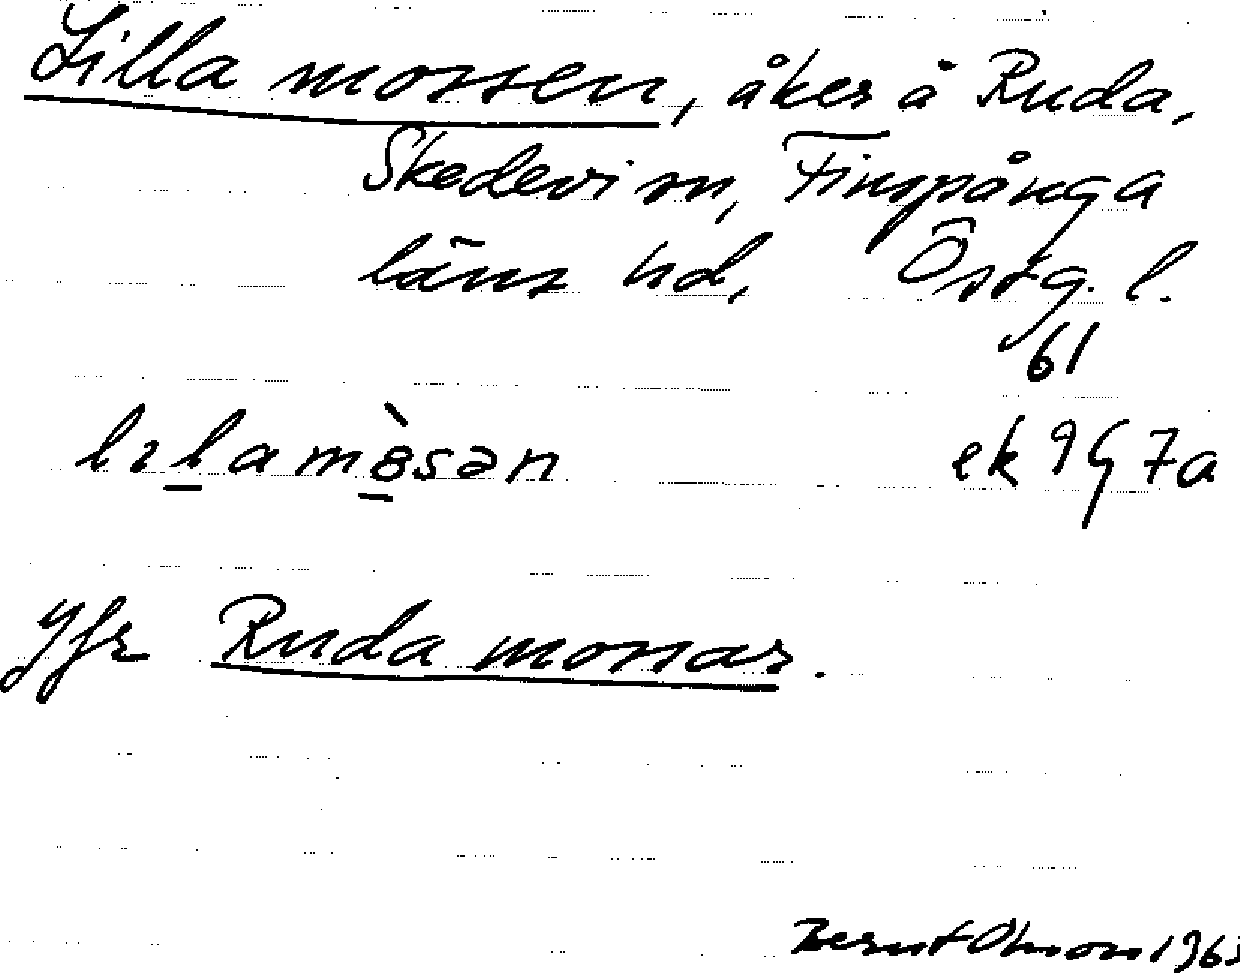 Lilla mossen, åker å Ruda,
Skedevi sn, Finspånga
läns hd, Östg. l.
61
ek 9G 7a
Jfr Ruda mossar.
Bernt Olsson 1963